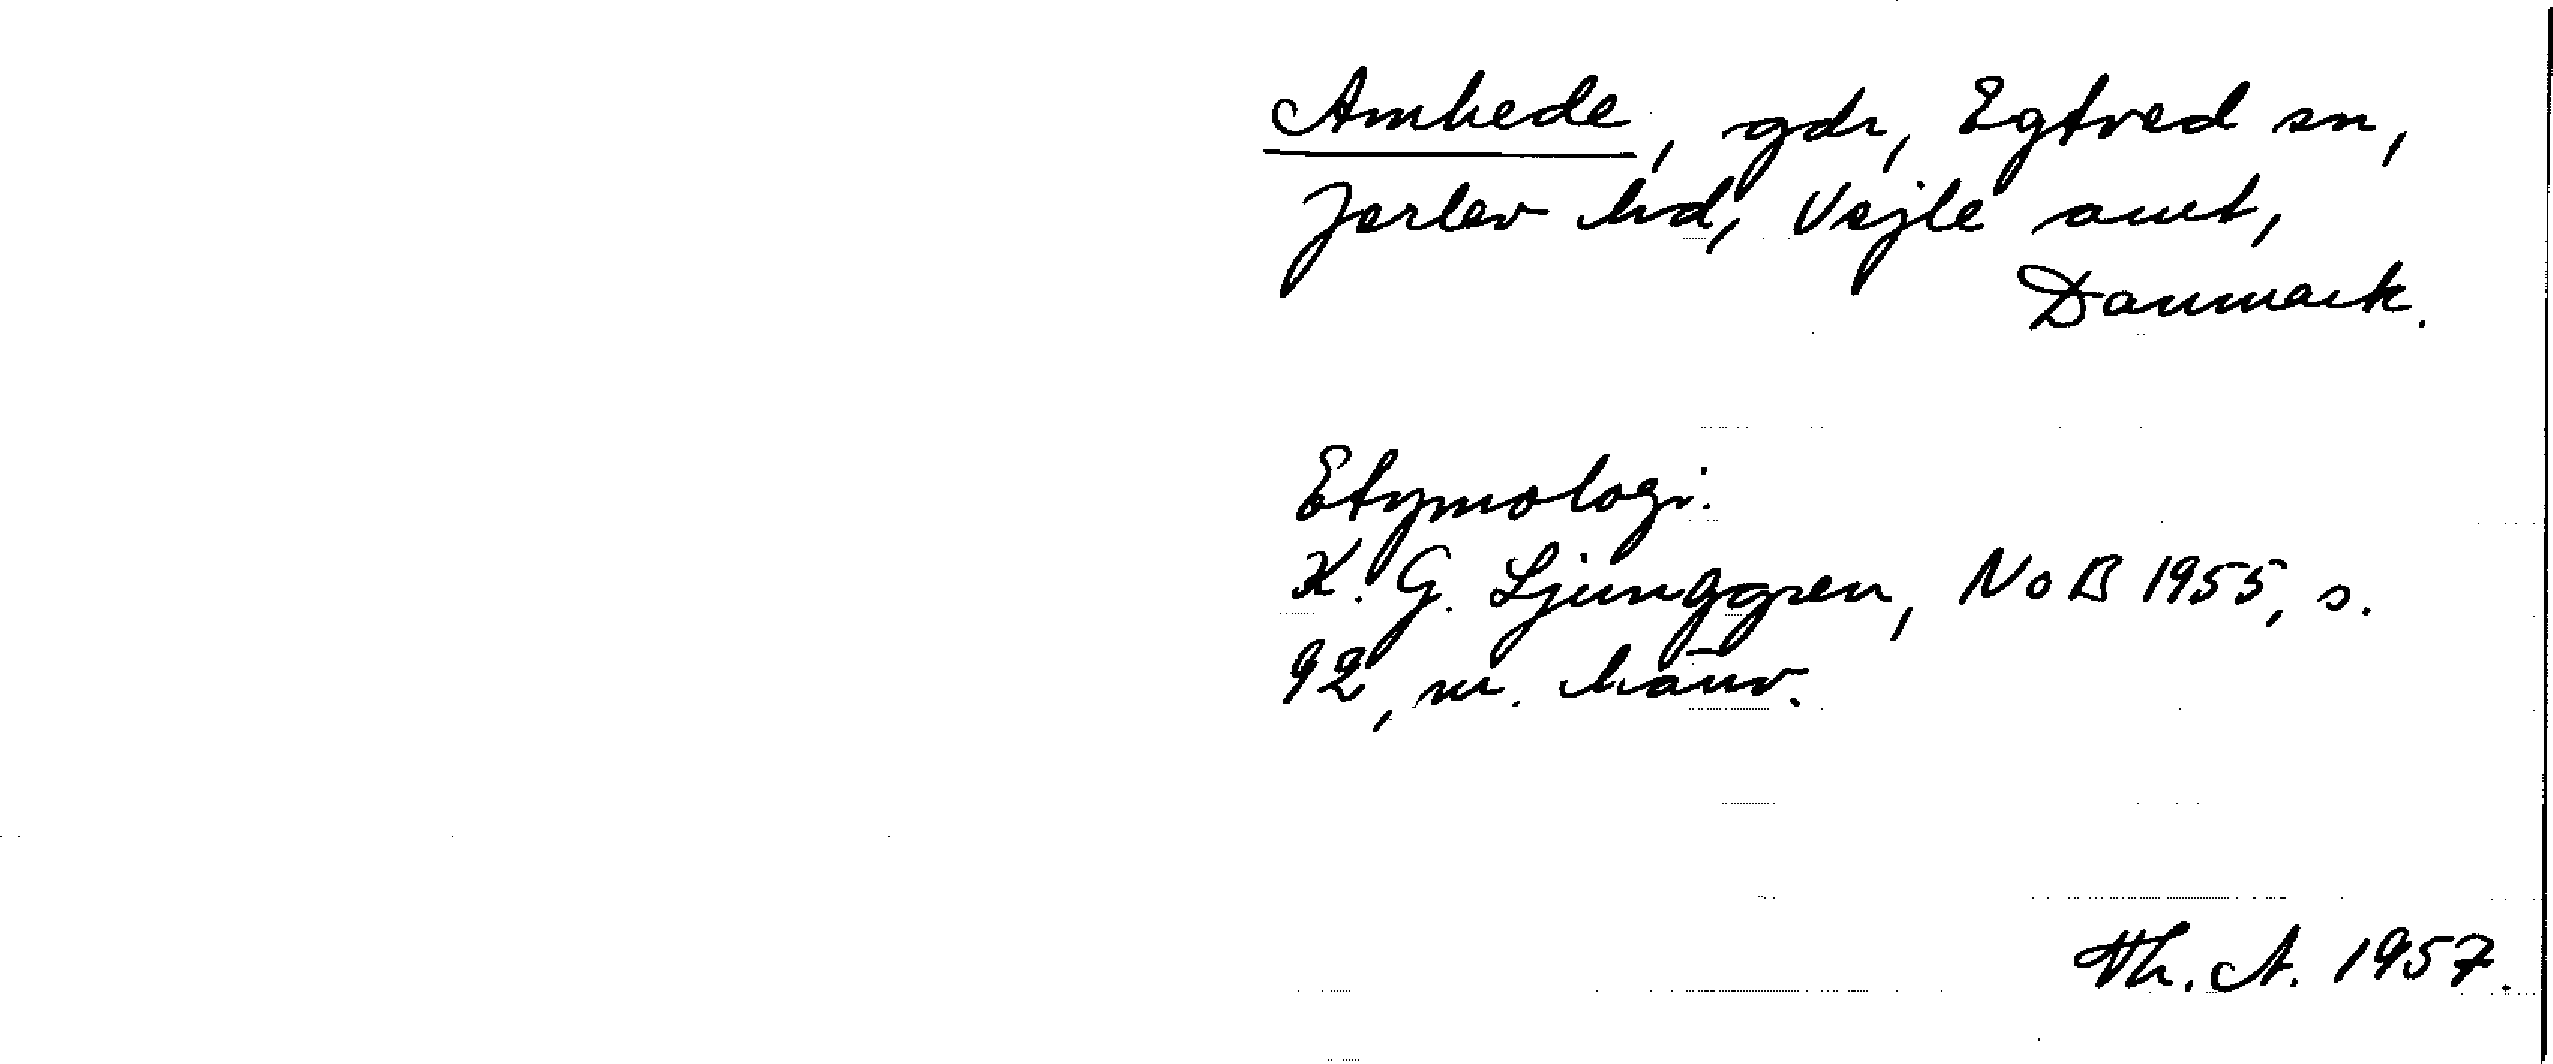 Amhede, gdr, Egtved sn,
Jerlev hd, Vejle amt,
Danmark.
Etymologi.
K. G. Ljunggren, NoB 1955, s.
92, m. hänv.
Th. A. 1957.